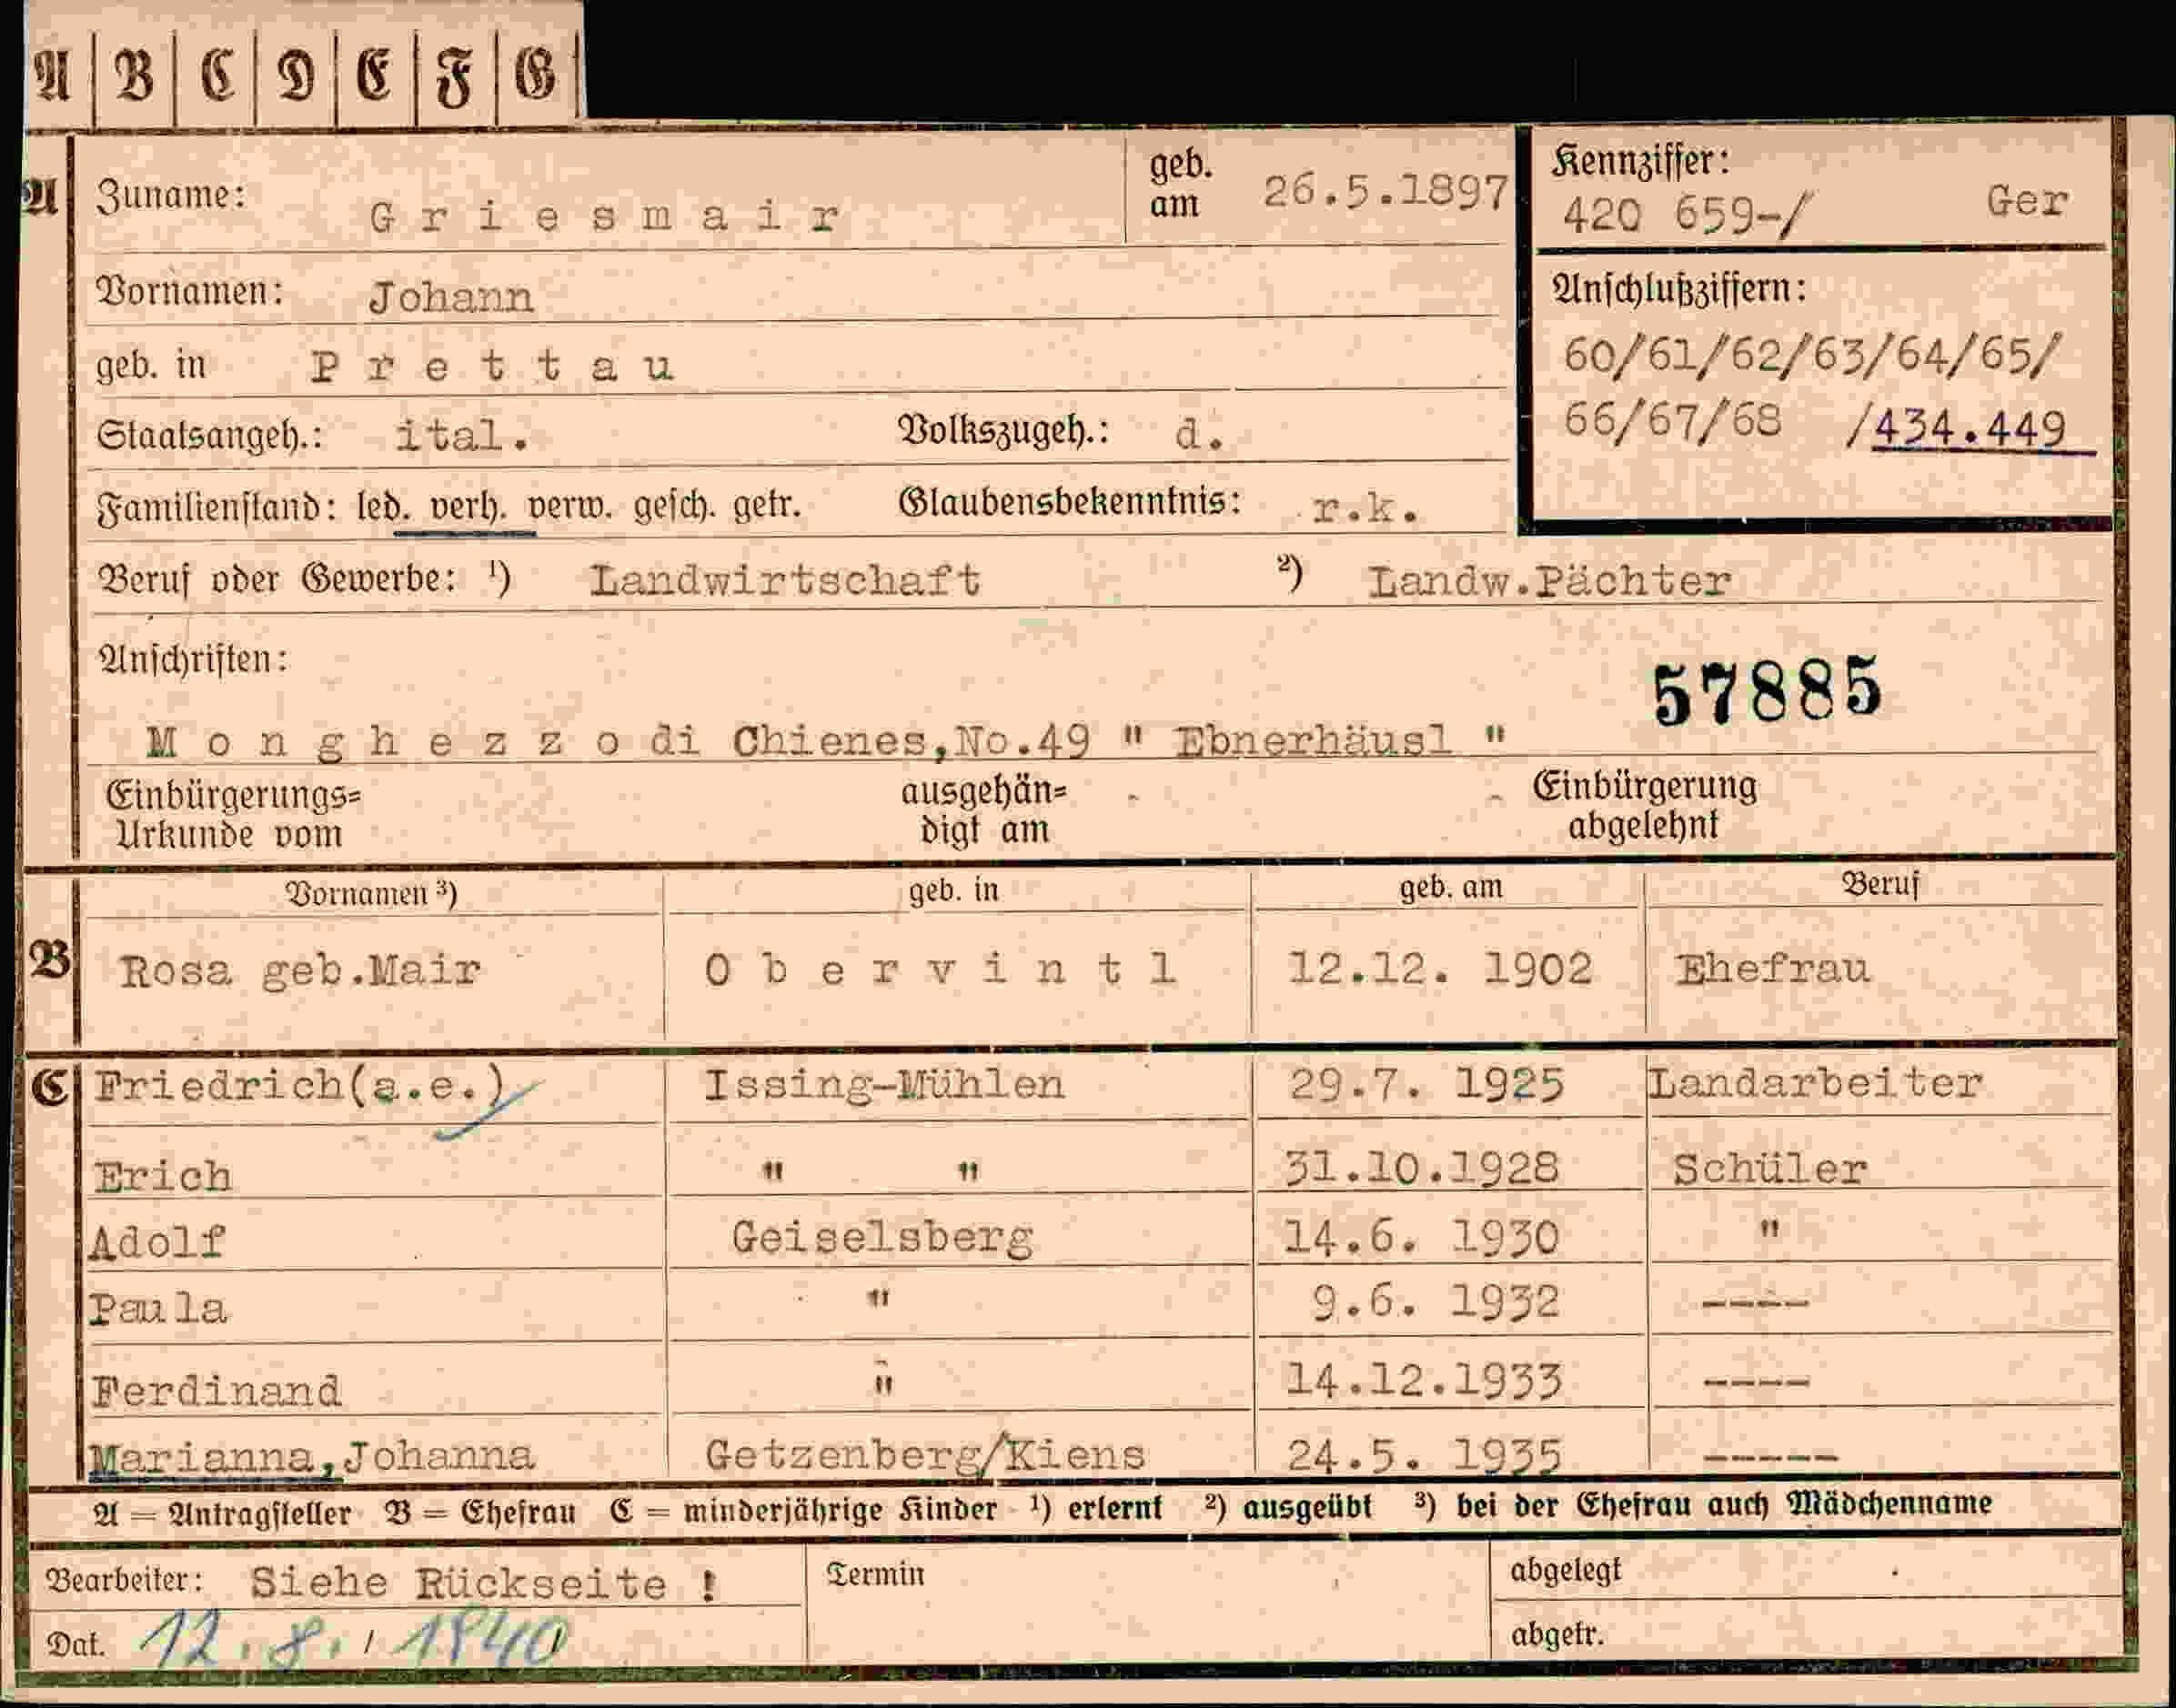 A B C D E F G
A Zuname: Griesmair geb. am 26.5.1897
Kennziffer: 420 659-/ Ger
Vornamen: Johann
Anschlußziffern:
60/61/62/63/64/65/
66/67/68 /434.449
geb. in Prettau
Staatsangeh.: ital. Volkszugeh.: d.
Familienstand: led. verh. verw. gesch. getr. Glaubensbekenntnis: r.k.
Beruf oder Gewerbe: ¹) Landwirtschaft ²) Landw.Pächter
Anschriften:
57885
Monghezzo di Chienes,No.49 " Ebnerhäusl "
Einbürgerungs= Urkunde vom ausgehän= digt am Einbürgerung abgelehnt
Vornamen ³) geb. in geb. am Beruf
B Rosa geb.Mair Obervintl 12.12. 1902 Ehefrau
C Friedrich(a.e.) Issing-Mühlen 29.7. 1925 Landarbeiter
Erich " " 31.10.1928 Schüler
Adolf Geiselsberg 14.6. 1930 "
Paula " 9.6. 1932 ----
Ferdinand " 14.12.1933 ----
Marianna,Johanna Getzenberg/Kiens 24.5. 1935 -----
A = Antragsteller B = Ehefrau C = minderjährige Kinder ¹) erlernt ²) ausgeübt ³) bei der Ehefrau auch Mädchenname
Bearbeiter: Siehe Rückseite ! Termin abgelegt
Dat. 12.8./1940 abgetr.